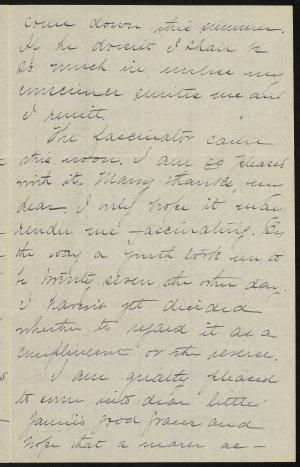 come down this summer.
If he doesn't I shall be
so much in unless my
conscience smites me and
I remit.
The fascinator came
this noon. I am so pleased
with it. Many thanks, my
dear. I only hope it may
render me fascinating. By
the way a youth took me to
be twenty seven the other day.
I haven't yet decided
whether to regard it as a
compliment or the reverse.
I am greatly pleased
to come into dear little
good graces and
hope that a nearer ac-